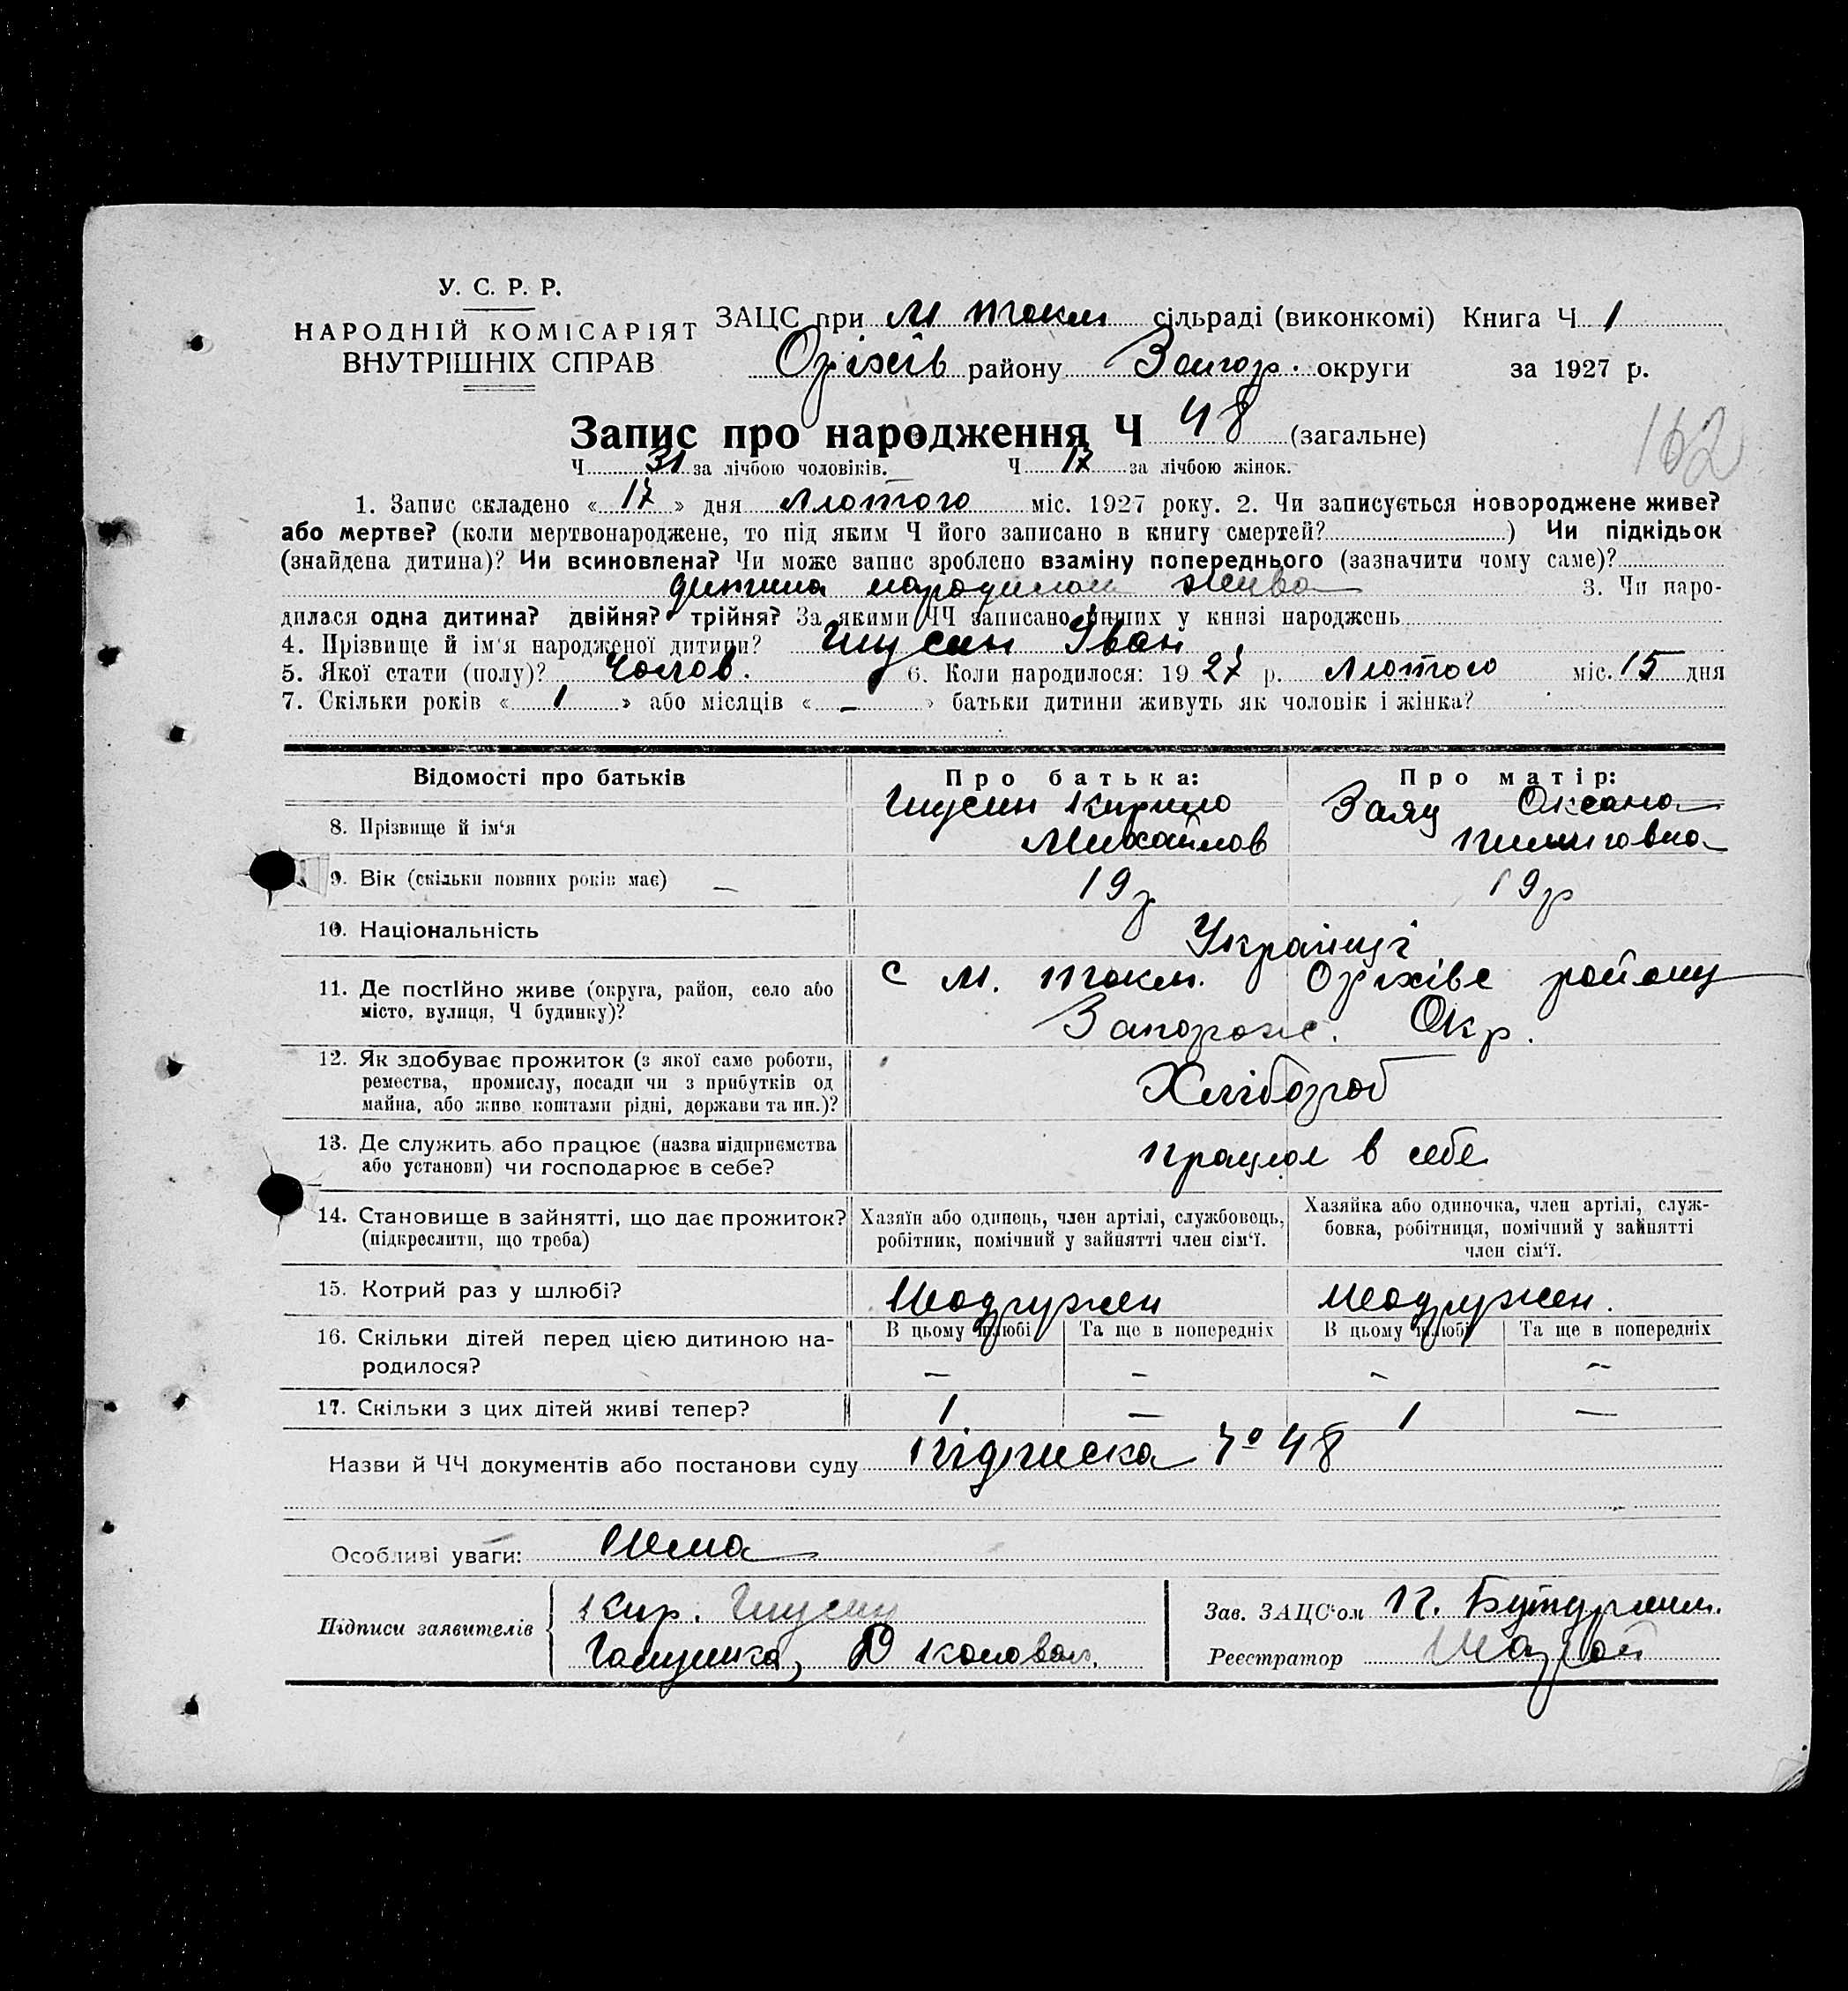 У. С. Р. Р.
НАРОДНІЙ КОМІСАРІЯТ
ВНУТРІШНІХ СПРАВ
ЗАЦС при М Токм сільраді (виконкомі) Книга Ч 1
Оріхів району Запор. округи за 1927 р.
Запис про народження Ч 48 (загальне)
162
Ч 31 за лічбою чоловіків. Ч 17 за лічбою жінок.
1. Запис складено « 17 » дня Лютого міс. 1927 року. 2. Чи записується новороджене живе?
або мертве? (коли мертвонароджене, то під яким Ч його записано в книгу смертей? ) Чи підкідьок
(знайдена дитина)? Чи всиновлена? Чи може запис зроблено взаміну попереднього (зазначити чому саме)?
дитина народилась жива 3. Чи наро-
дилася одна дитина? двійня? трійня? За якими ЧЧ записано инших у книзі народжень
4. Прізвище й ім'я народженої дитини? Гнусин Іван
5. Якої стати (полу)? Чолов. 6. Коли народилося: 1927 р. Лютого міс. 15 дня
7. Скільки років « 1 » або місяців « – » батьки дитини живуть як чоловік і жінка?
Відомості про батьків Про батька: Про матір:
8. Прізвище й ім'я Гнусин Кирило Михайлов Заяц Оксана Пилиповна
9. Вік (скільки повних років має) — 19 р 19 р
10. Національність Українці
11. Де постійно живе (округа, район, село або
місто, вулиця, Ч будинку)? с М. Токм. Оріхівс району
Запорож. Окр.
12. Як здобуває прожиток (з якої саме роботи,
ремества, промислу, посади чи з прибутків од
майна, або живе коштами рідні, держави та ин.)? Хлібороб
13. Де служить або працює (назва підприємства
або установи) чи господарює в себе? працює в себе
14. Становище в зайнятті, що дає прожиток?
(підкреслити, що треба)
Хазяїн або одинець, член артілі, службовець,
робітник, помічний у зайнятті член сім'ї.
Хазяйка або одиночка, член артілі, служ-
бовка, робітниця, помічний у зайнятті
член сім'ї.
15. Котрий раз у шлюбі?
16. Скільки дітей перед цією дитиною на-
родилося?
В цьому шлюбі Та ще в попередніх В цьому шлюбі Та ще в попередніх
– – – –
17. Скільки з цих дітей живі тепер? 1 — 1 —
Назви й ЧЧ документів або постанови суду Підписка № 48
Особливі уваги: Нема
Підписи заявителів Кир. Гнусин
Коновал.
Зав. ЗАЦС'ом
Реєстратор